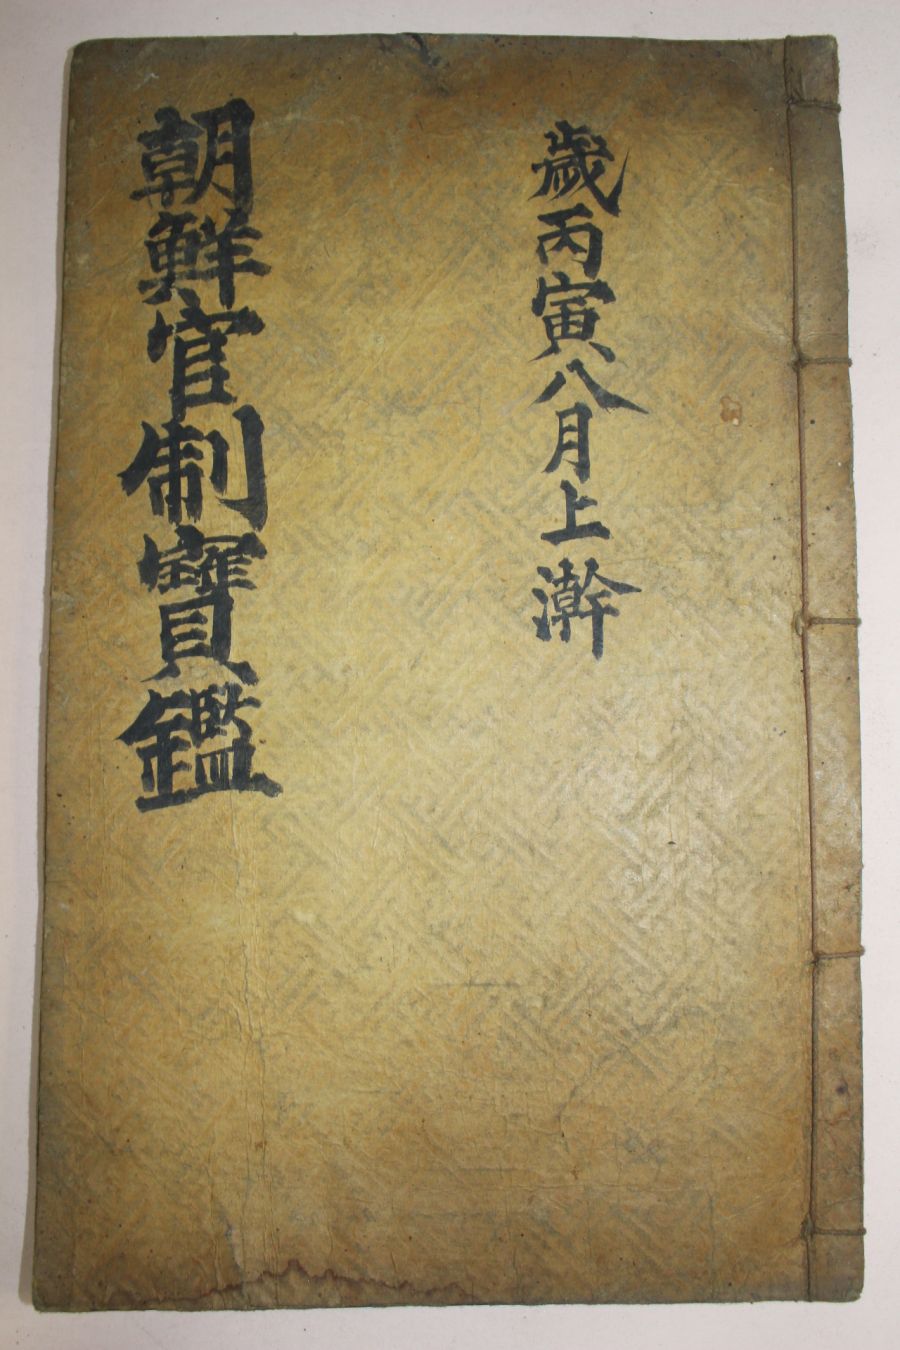 歲丙寅八月上澣
朝鮮官制寶鑑